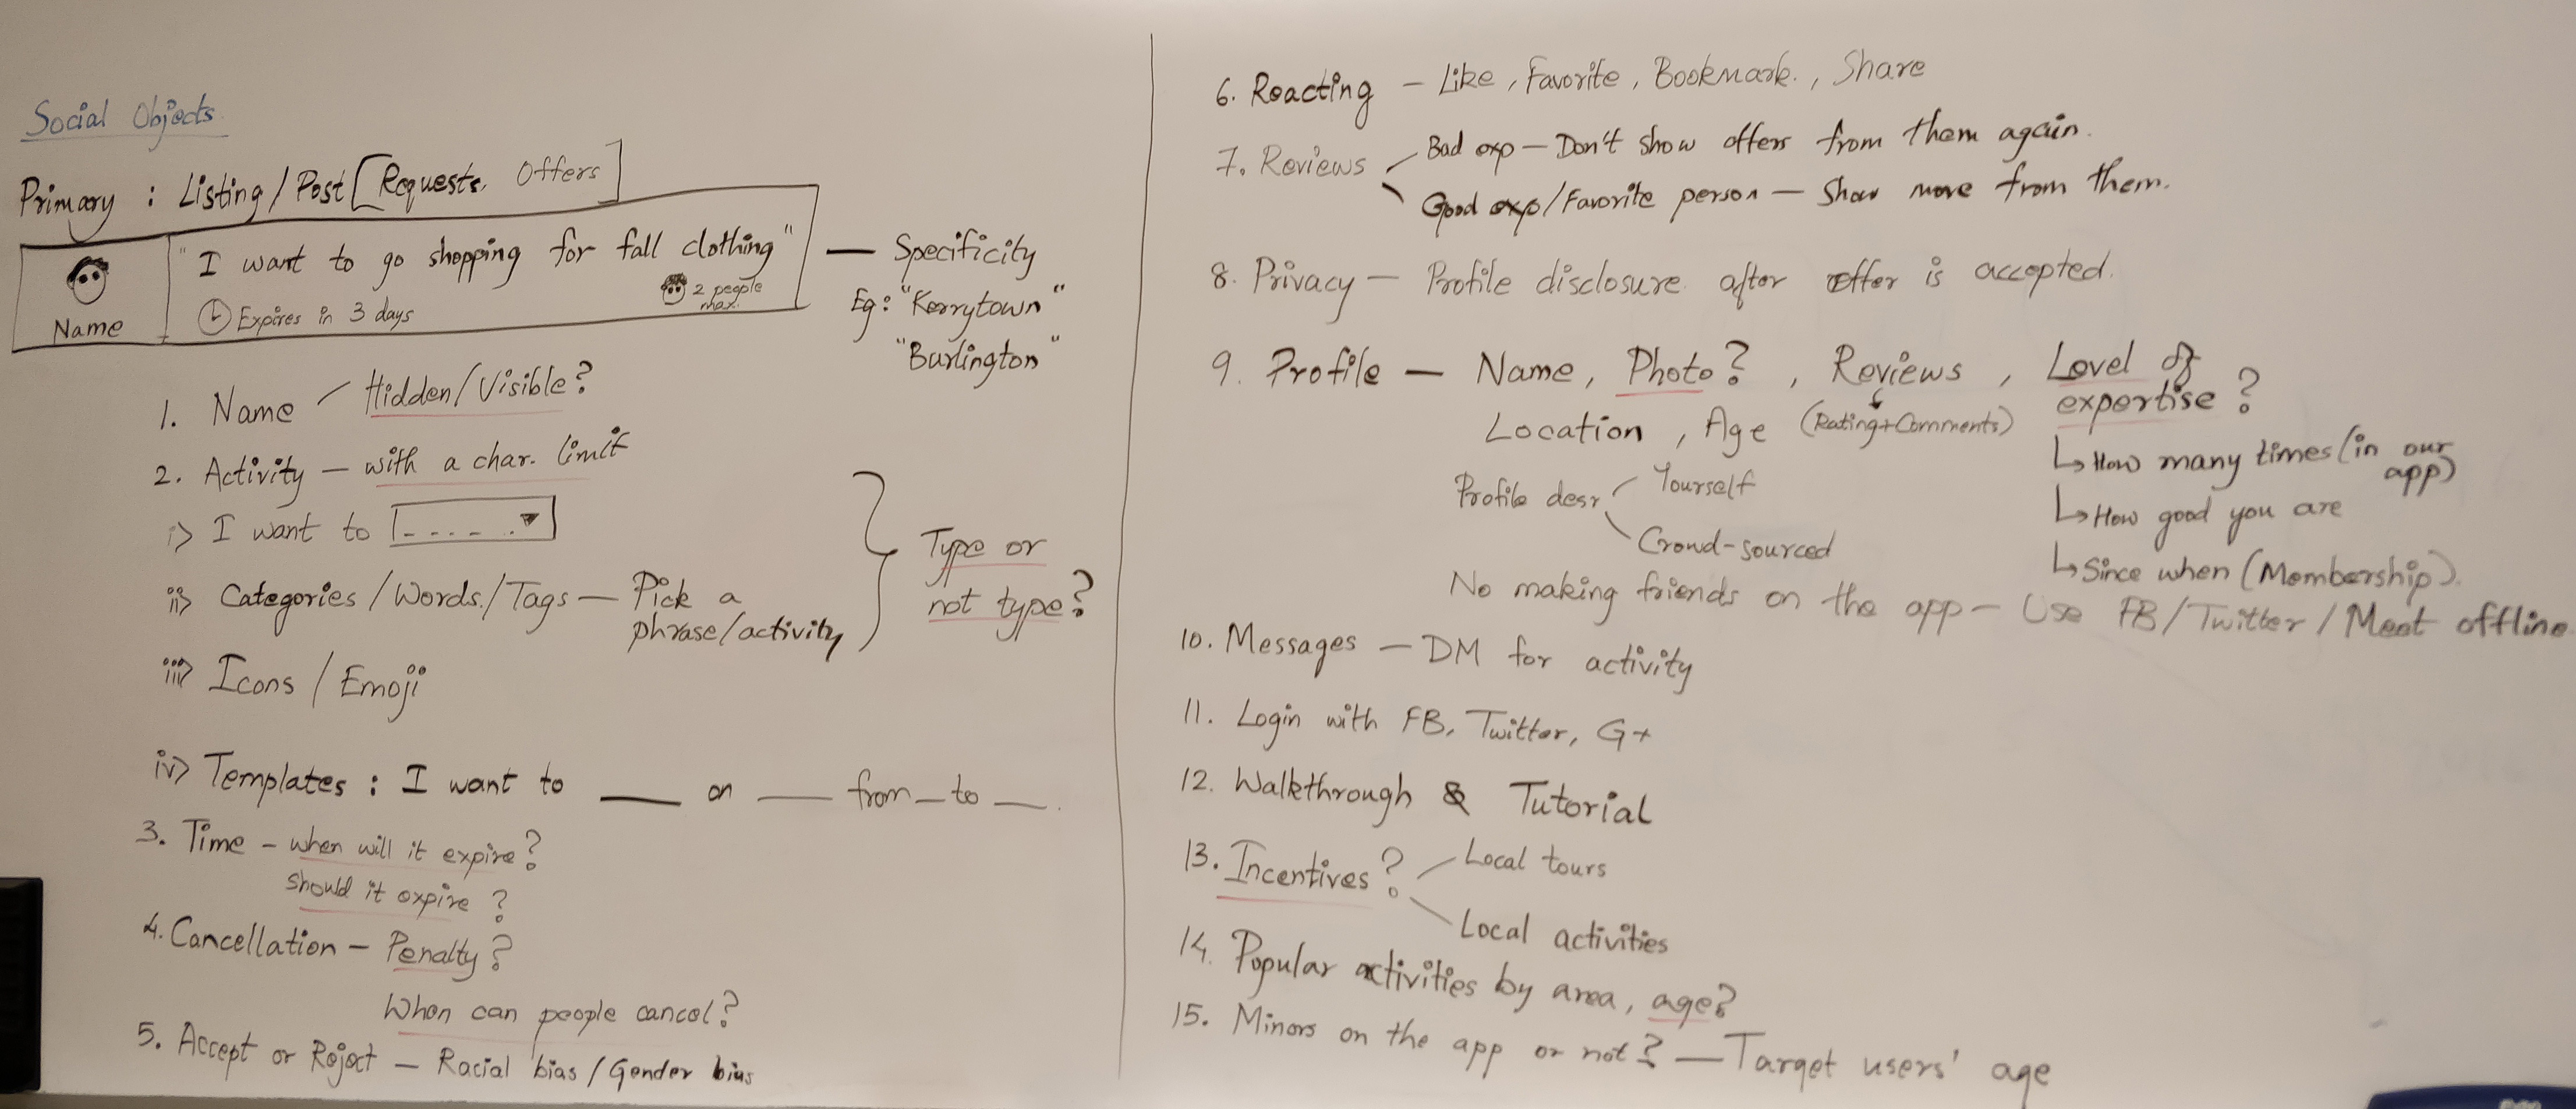 Social Objects
Primary : Listing/Post [Requests, Offers]
"I want to go shopping for fall clothing"
Expires in 3 days
2 people
max.
Name
— Specificity
Eg: "Kerrytown"
"Burlington"
1. Name – Hidden/Visible?
2. Activity – with a char. limit
i> I want to ----
ii> Categories/Words/Tags – Pick a
phrase/activity
iii> Icons / Emoji
Type or
not type?
iv> Templates : I want to ___ on ___ from _ to __.
3. Time – when will it expire?
should it expire?
4. Cancellation – Penalty?
When can people cancel?
5. Accept or Reject – Racial bias / Gender bias
6. Reacting – Like, Favorite, Bookmark, Share
7. Reviews
Bad exp – Don't show offers from them again.
Good exp/Favorite person – Show more from them.
8. Privacy – Profile disclosure after offer is accepted.
9. Profile – Name, Photo?, Reviews, Level of
expertise?
Location, Age (Rating+Comments)
↳ How many times (in our
app)
↳ How good you are
↳ Since when (Membership).
Profile desr
Yourself
Crowd-sourced
No making friends on the app – Use FB/Twitter/Meet offline
10. Messages – DM for activity
11. Login with FB, Twitter, G+
12. Walkthrough & Tutorial
13. Incentives?
Local tours
Local activities
14. Popular activities by area, age?
15. Minors on the app or not? – Target users' age